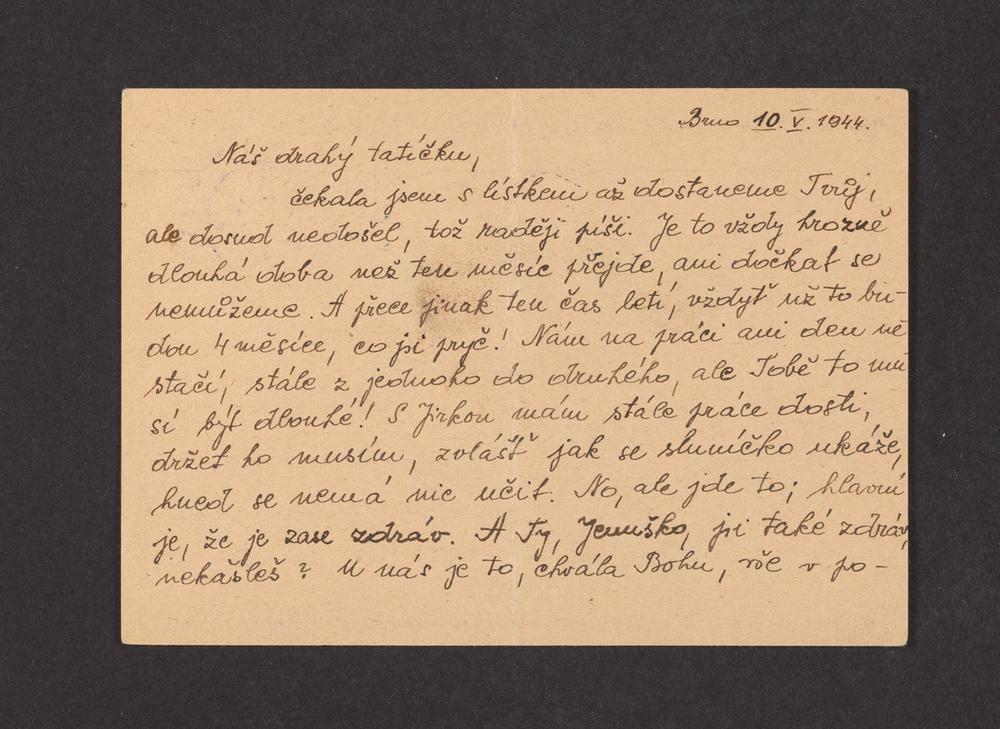 Brno 10. V. 1944.
Náš drahý tatíčku,
čekala jsem s lístkem až dostaneme Tvůj,
ale dosud nedošel, tož raději píši. Je to vždy hrozně
dlouhá doba než ten měsíc přejde, ani dočkat se
nemůžeme. A přece jinak ten čas letí, vždyť už to bu-
dou 4 měsíce, co jsi pryč! Nám na práci ani den ne
stačí, stále z jednoho do druhého, ale Tobě to mu
sí být dlouhé! S Jirkou mám stále práce dosti,
držet ho musím, zvlášť jak se sluníčko ukáže,
hned se nemá nic učit. No, ale jde to; hlavní
je, že je zase zdráv. A Ty, Jenuško, jsi také zdráv,
nekašleš? U nás je to, chvála Bohu, vše v po-